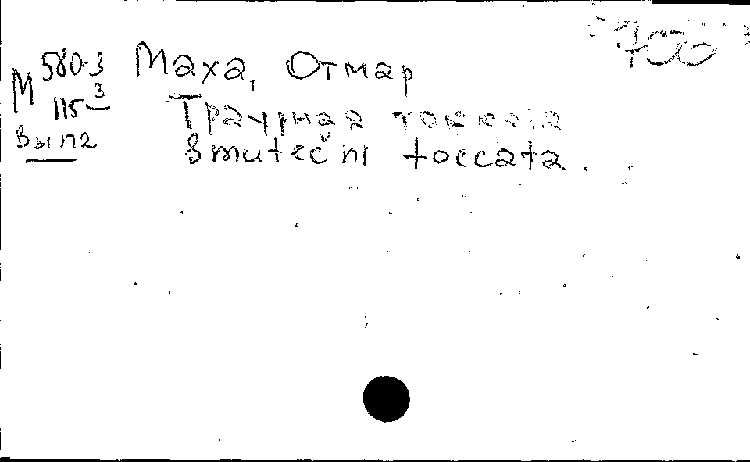 М 580-3
115-3
Вып2
Маха, Отмар
Траурная токката
Smuteční toccata.